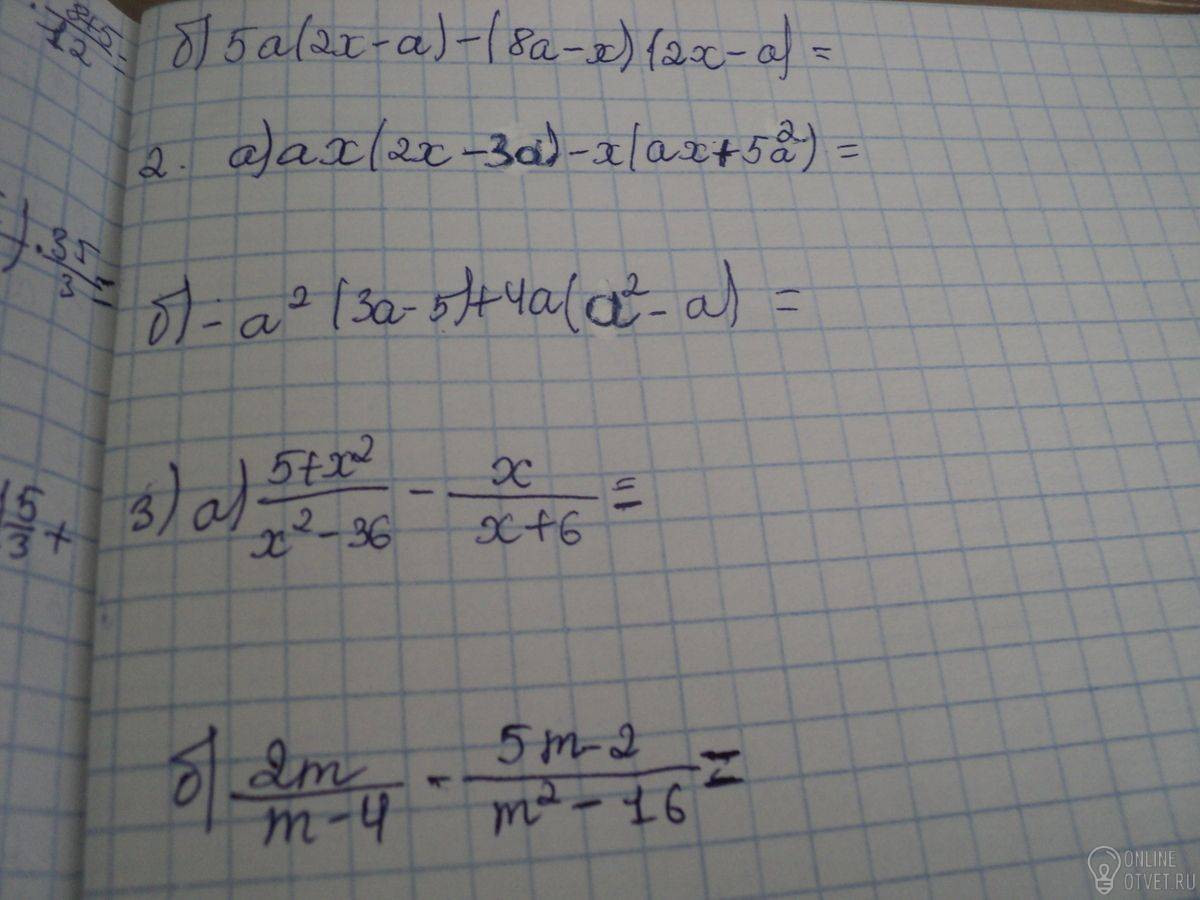 б) 5a(2x-a)-(8a-x)(2x-a)=
2. а) ax(2x-3a)-x(ax+5a²)=
б) -a²(3a-5)+4a(a²-a) =
3) а) (5+x²)/(x²-36) - x/(x+6) =
б) 2m/(m-4) - (5m-2)/(m²-16) =
35
3
15
3 +
ONLINE
OTVET.RU